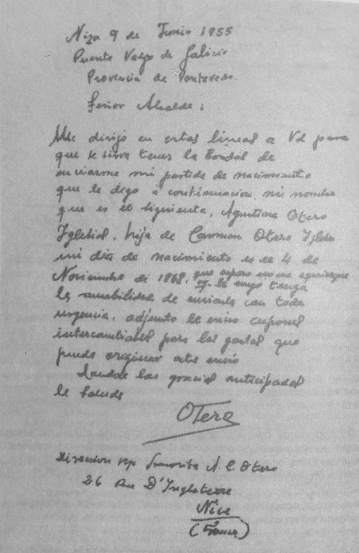 Niza 9 de Junio 1955
Puente Valga de Galicia
Provencia de Pontevedra
Señor Alcalde;
Me dirijo en estas lineas a Vd para
que se sirva tener la bondad de
enviarme mi partida de nacimiento
que le digo a continuacion mi nombre
que es el siguiente, Agustina Otero
Iglesias, hija de Carmen Otero Iglesias
mi dia de nacimiento es el 4 de
Noviembre de 1868, que espero
y le ruego tenga
la amabilidad de enviarla con toda
urgencia, adjunto le envio cupones
intercambiables para los gastos que
pueda originar este envio
Dandole las gracias anticipadas
le saluda
Otero
Direccion Señorita A. C. Otero
26 Rue D'Ingleterre
Nice
(France)